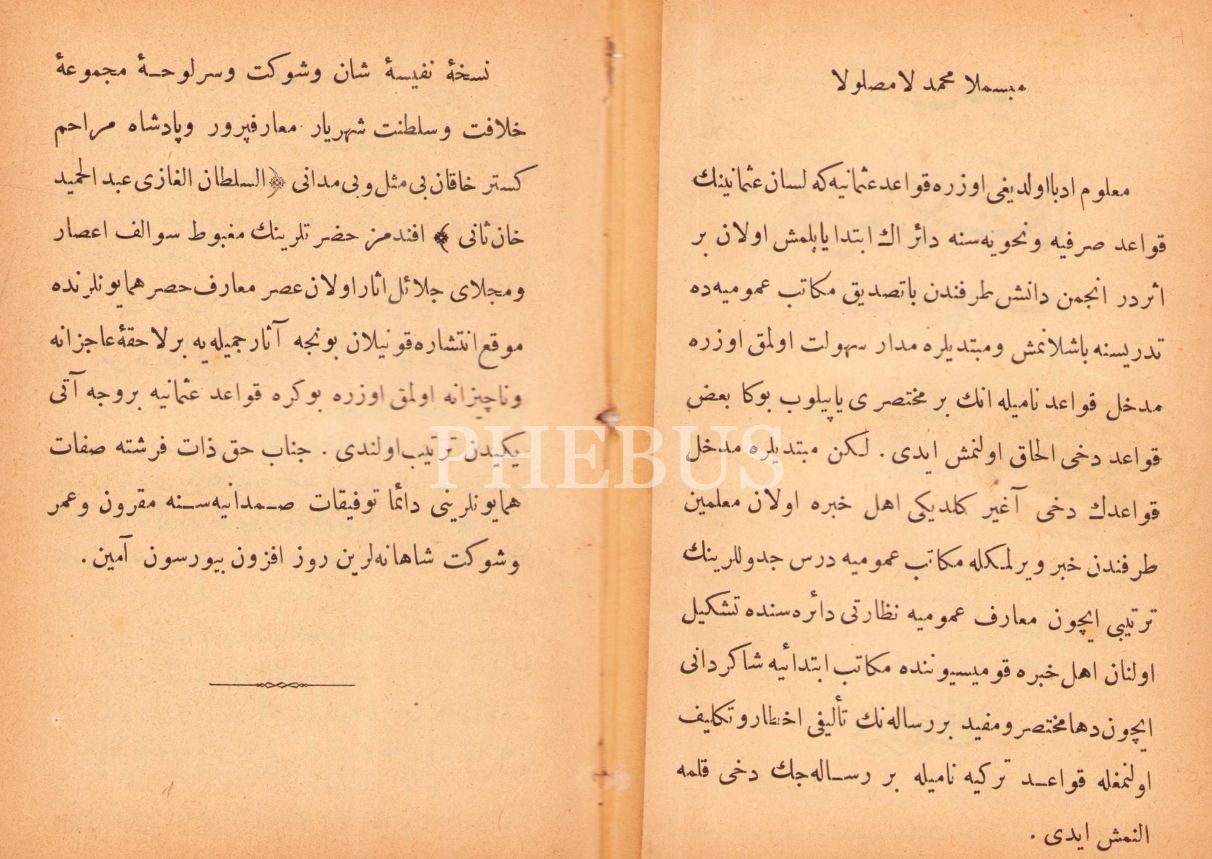 مبسملا محمد لا مصلولا
معلوم ادبا اولديغی اوزره قواعد عثمانيه كه لسان عثمانينك
قواعد صرفيه ونحويه‌سنه دائر اك ابتدا ياپلمش اولان بر
اثردر انجمن دانش طرفندن باتصديق مكاتب عموميه‌ده
تدريسنه باشلانمش ومبتديلره مدار سهولت اولمق اوزره
مدخل قواعد ناميله انك بر مختصری ياپيلوب بوكا بعض
قواعد دخی الحاق اولنمش ايدی . لكن مبتديلره مدخل
قواعدك دخی آغير كلديكی اهل خبره اولان معلمين
طرفندن خبر ويرلمكله مكاتب عموميه درس جدوللرينك
ترتيبی ايچون معارف عموميه نظارتی دائره‌سنده تشكيل
اولنان اهل خبره قوميسيوننده مكاتب ابتدائيه شاكردانی
ايچون دها مختصر ومفيد بر رساله‌نك تأليفی اخطار وتكليف
اولنمغله قواعد تركيه ناميله بر رساله‌جك دخی قلمه
النمش ايدی .
نسخهٔ نفيسهٔ شان وشوكت وسرلوحهٔ مجموعهٔ
خلافت وسلطنت شهريار معارفپرور وپادشاه مراحم
كستر خاقان بی مثل وبی مدانی ﴿ السلطان الغازی عبد الحميد
خان ثانی ﴾ افندمز حضرتلرينك مغبوط سوالف اعصار
ومجلای جلائل اثار اولان عصر معارف حصر همايونلرنده
موقع انتشاره قونيلان بونجه آثار جميله‌يه بر لاحقهٔ عاجزانه
وناچيزانه اولمق اوزره بوكره قواعد عثمانيه بروجه آتی
يكيدن ترتيب اولندی . جناب حق ذات فرشته صفات
همايونلرينی دائما توفيقات صمدانيه‌سنه مقرون وعمر
وشوكت شاهانه‌لرين روز افزون بيورسون آمين .
PHEBUS